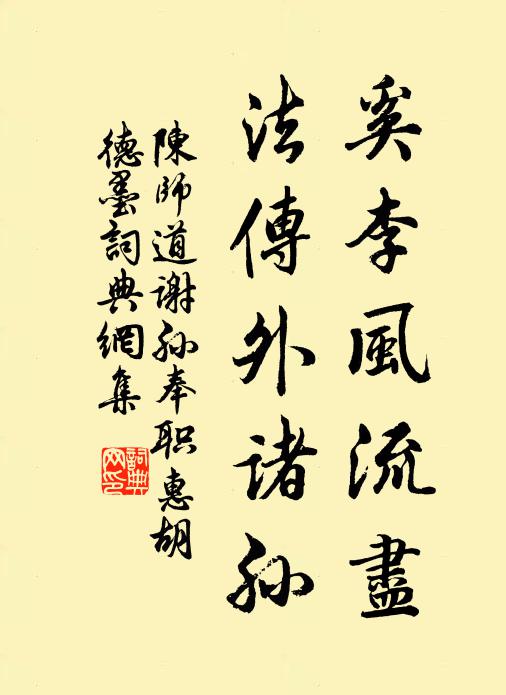 奚李風流盡
法傳外諸孙
陳師道謝孙奉职惠胡
德墨詞典網集
詞典网印